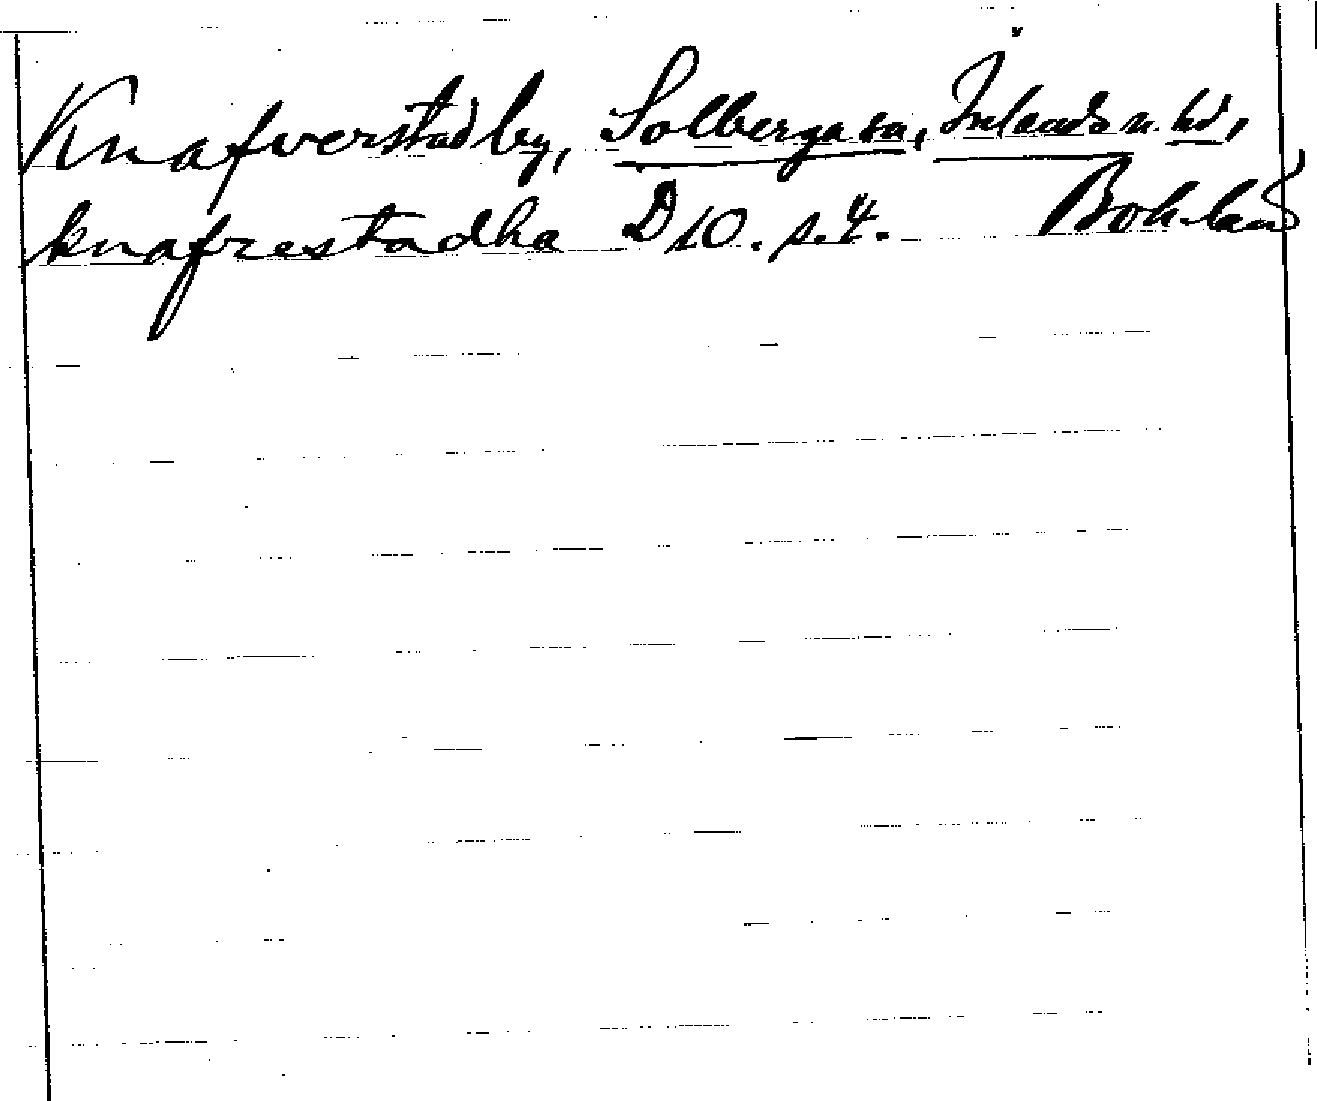 Knafverstad by, Solberga sn, Inlands n. hd,
knafrestadha D 10. s. 4. Boh-land